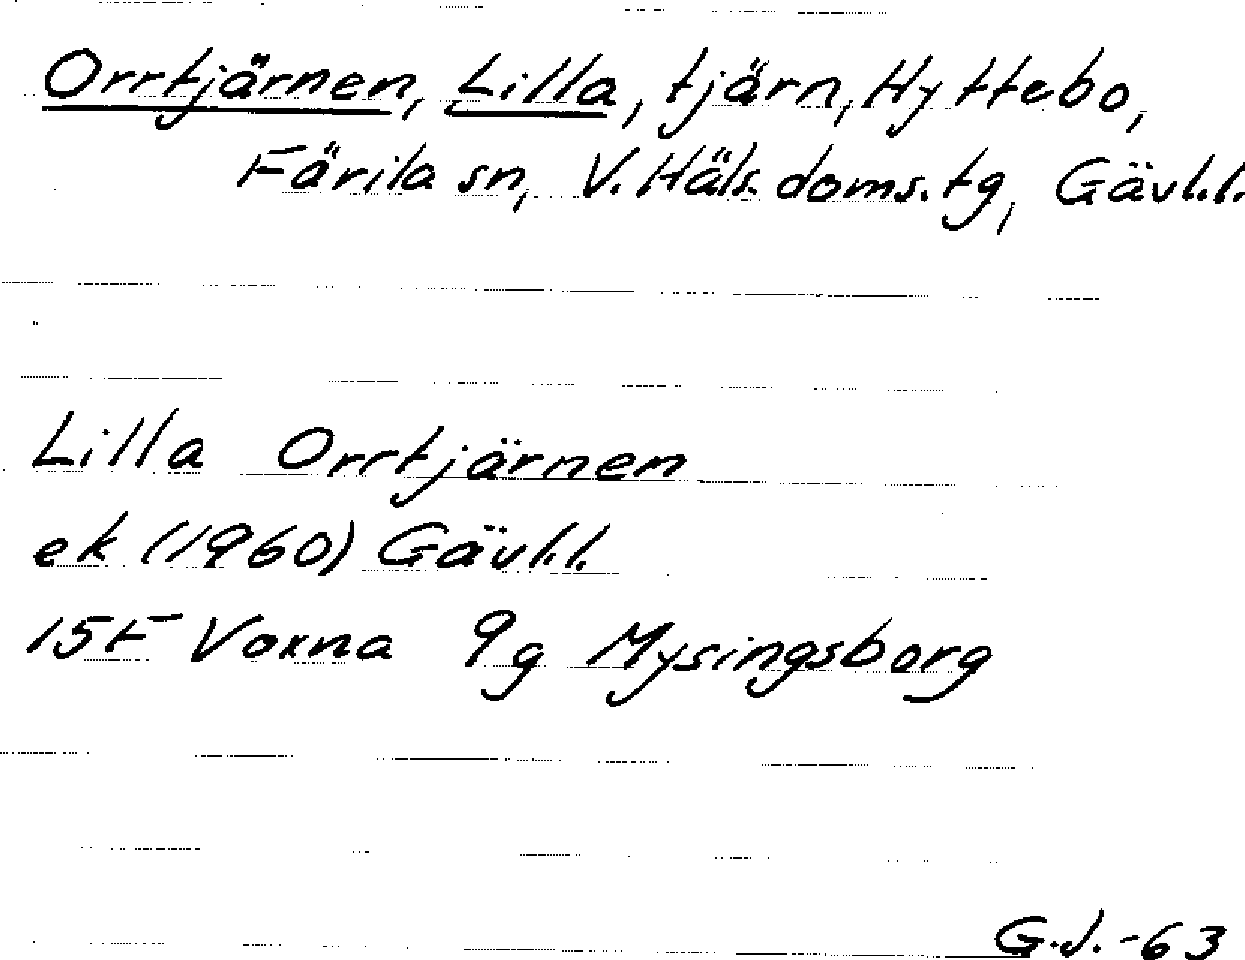 Orrtjärnen, Lilla, tjärn, Hyttebo,
Färila sn, V. Häls. doms. tg, Gävl.l.
Lilla Orrtjärnen
ek (1960) Gävl.l.
15F Voxna 9g Mysingsborg
G.J. -63